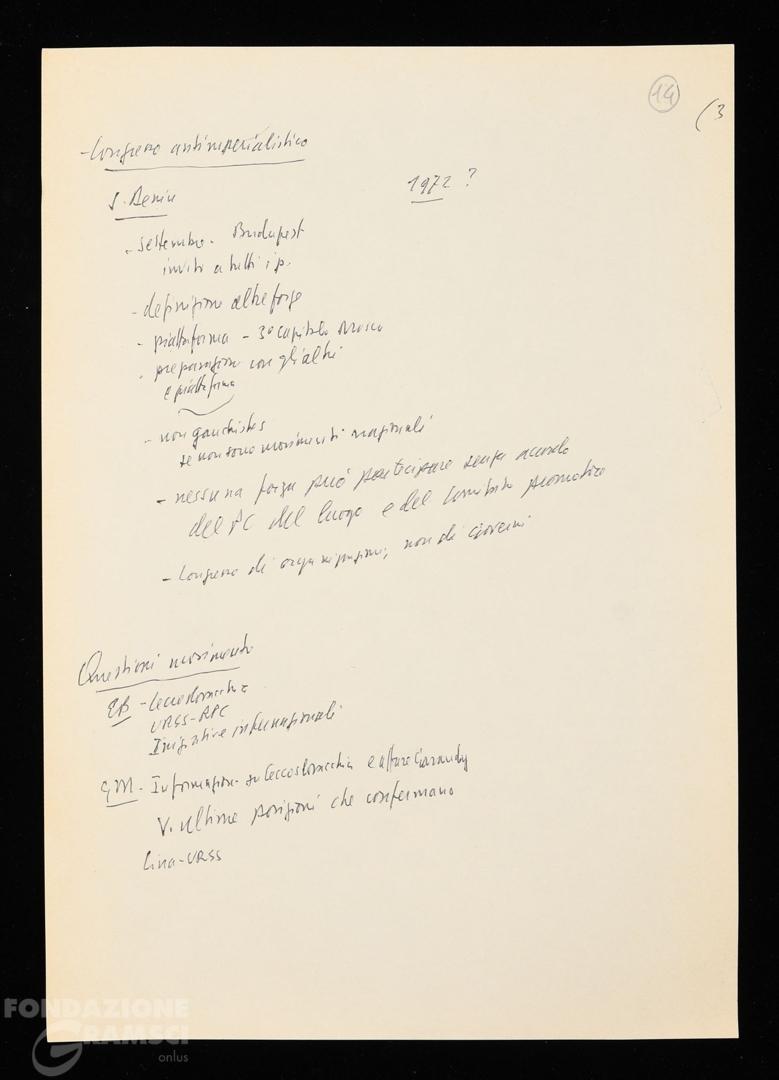 14
(3
- Congresso antimperialistico
1972 ?
- settembre - Budapest
inviti a tutti i p.
- definizione altre forze
- piattaforma - 3° capitolo Mosca
- preparazione con gli altri
e piattaforma
- non gauchistes
se non sono movimenti nazionali
- nessuna forza può partecipare senza accordo
del PC del luogo e del Comitato promotore
- Congresso di organizzazioni, non di giovani
Questioni movimento
EB - Cecoslovacchia
URSS-RPC
Iniziative internazionali
GM - Informazioni su Cecoslovacchia e affare Garaudy
V. ultime posizioni che confermano
Cina-URSS
FONDAZIONE
GRAMSCI
onlus